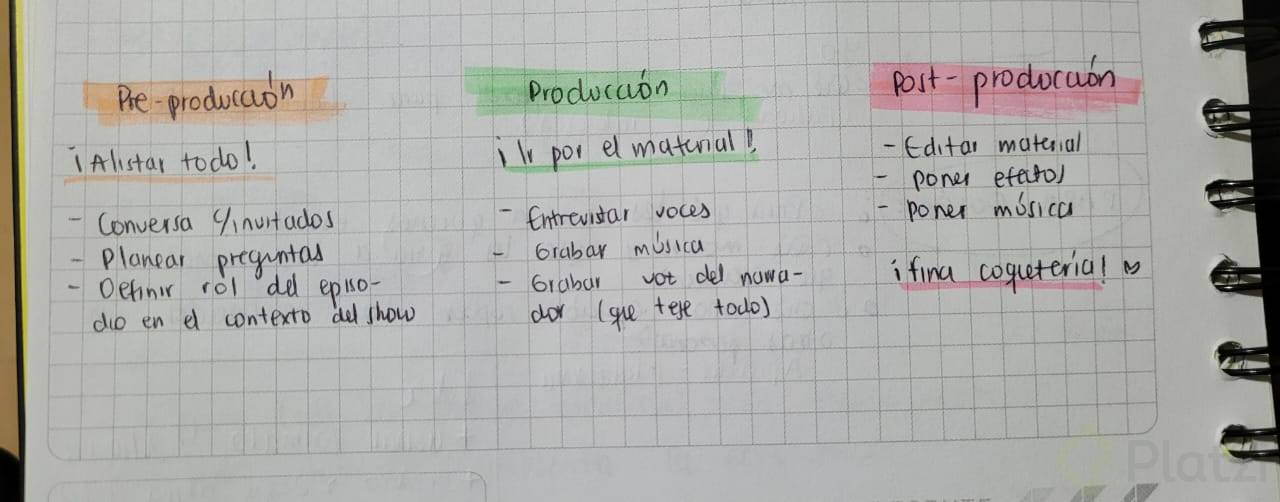 Pre-producción
¡Alistar todo!
- Conversa c/invitados
- Planear preguntas
- Definir rol del episo-
dio en el contexto del show
Producción
¡Ir por el material!
- Entrevistar voces
- Grabar música
- Grabar voz del narra-
dor (que teje todo)
Post-producción
- Editar material
- poner efectos
- poner música
¡fina coquetería!
Platzi